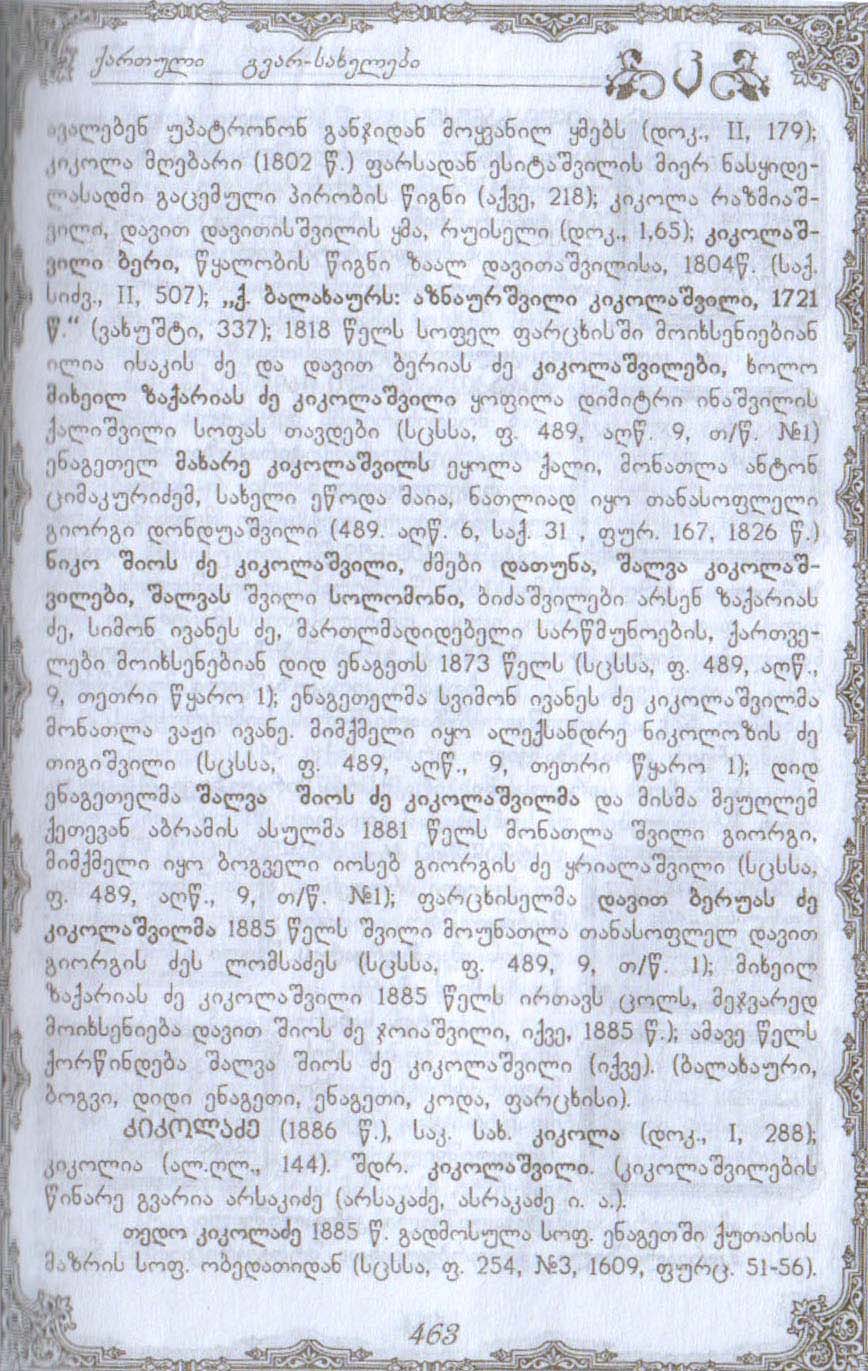 ქართული გვარ-სახელები
კ
ავალებენ უპატრონონ განჯიდან მოყვანილ ყმებს (დოკ., II, 179);
კიკოლა მღებარი (1802 წ.) ფარსადან ესიტაშვილის მიერ ნასყიდე-
ლასადმი გაცემული პირობის წიგნი (აქვე, 218); კიკოლა რაზმიაშ-
ვილი, დავით დავითისშვილის ყმა, რუისელი (დოკ., 1,65); კიკოლაშ-
ვილი ბერი, წყალობის წიგნი ზაალ დავითაშვილისა, 1804წ. (საქ.
სიძვ., II, 507); „ქ. ბალახაურს: აზნაურშვილი კიკოლაშვილი, 1721
წ.“ (ვახუშტი, 337); 1818 წელს სოფელ ფარცხისში მოიხსენიებიან
ილია ისაკის ძე და დავით ბერიას ძე კიკოლაშვილები, ხოლო
მიხეილ ზაქარიას ძე კიკოლაშვილი ყოფილა დიმიტრი ინაშვილის
ქალიშვილი სოფას თავდები (სცსსა, ფ. 489, აღწ. 9, თ/წ. №1)
ენაგეთელ მახარე კიკოლაშვილს ეყოლა ქალი, მონათლა ანტონ
ციმაკურიძემ, სახელი ეწოდა მაია, ნათლიად იყო თანასოფლელი
გიორგი დონდუაშვილი (489. აღწ. 6, საქ. 31 , ფურ. 167, 1826 წ.)
ნიკო შიოს ძე კიკოლაშვილი, ძმები დათუნა, შალვა კიკოლაშ-
ვილები, შალვას შვილი სოლომონი, ბიძაშვილები არსენ ზაქარიას
ძე, სიმონ ივანეს ძე, მართლმადიდებელი სარწმუნოების, ქართვე-
ლები მოიხსენებიან დიდ ენაგეთს 1873 წელს (სცსსა, ფ. 489, აღწ.,
9, თეთრი წყარო 1); ენაგეთელმა სვიმონ ივანეს ძე კიკოლაშვილმა
მონათლა ვაჟი ივანე. მიმქმელი იყო ალექსანდრე ნიკოლოზის ძე
თიგიშვილი (სცსსა, ფ. 489, აღწ., 9, თეთრი წყარო 1); დიდ
ენაგეთელმა შალვა შიოს ძე კიკოლაშვილმა და მისმა მეუღლემ
ქეთევან აბრამის ასულმა 1881 წელს მონათლა შვილი გიორგი,
მიმქმელი იყო ბოგველი იოსებ გიორგის ძე ყრიალაშვილი (სცსსა,
ფ. 489, აღწ., 9, თ/წ. №1); ფარცხისელმა დავით ბერუას ძე
კიკოლაშვილმა 1885 წელს შვილი მოუნათლა თანასოფლელ დავით
გიორგის ძეს ლომსაძეს (სცსსა, ფ. 489, 9, თ/წ. 1); მიხეილ
ზაქარიას ძე კიკოლაშვილი 1885 წელს ირთავს ცოლს, მეჯვარედ
მოიხსენიება დავით შიოს ძე ჯოიაშვილი, იქვე, 1885 წ.); ამავე წელს
ქორწინდება შალვა შიოს ძე კიკოლაშვილი (იქვე). (ბალახაური,
ბოგვი, დიდი ენაგეთი, ენაგეთი, კოდა, ფარცხისი).
ᲙᲘᲙᲝᲚᲐᲫᲔ (1886 წ.), საკ. სახ. კიკოლა (დოკ., I, 288);
კიკოლია (ალ.ღლ., 144). შდრ. კიკოლაშვილი. (კიკოლაშვილების
წინარე გვარია არსაკიძე (არსაკაძე, ასრაკაძე ი. ა.).
თედო კიკოლაძე 1885 წ. გადმოსულა სოფ. ენაგეთში ქუთაისის
მაზრის სოფ. ობედათიდან (სცსსა, ფ. 254, №3, 1609, ფურც. 51-56).
463